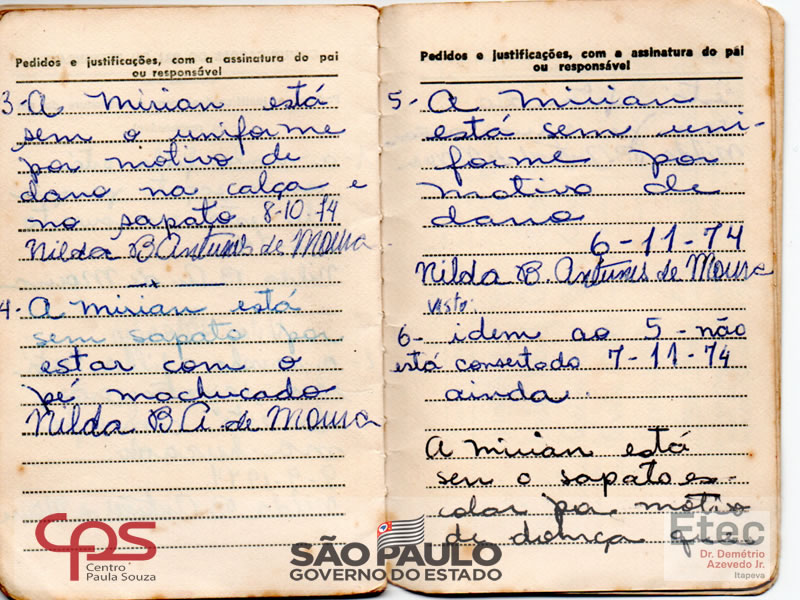 Pedidos e justificações, com a assinatura do pai
ou responsável
3-A Mirian está
sem o uniforme
por motivo de
dano na calça e
no sapato 8-10.74
Nilda B Antunes de Moura
4-A Mirian está
sem sapato por
estar com o
pé machucado
Nilda B A de Moura
Pedidos e justificações, com a assinatura do pai
ou responsável
5-A Mirian
está sem uni-
forme por
motivo de
dano
6-11-74
Nilda B. Antunes de Moura
visto.
6- idem ao 5-não
está consertado 7-11-74
ainda.
A Mirian está
sem o sapato es-
colar por motivo
de doença que
cps
Centro
Paula Souza
SÃO PAULO
GOVERNO DO ESTADO
Etec
Dr. Demétrio
Azevedo Jr.
Itapeva